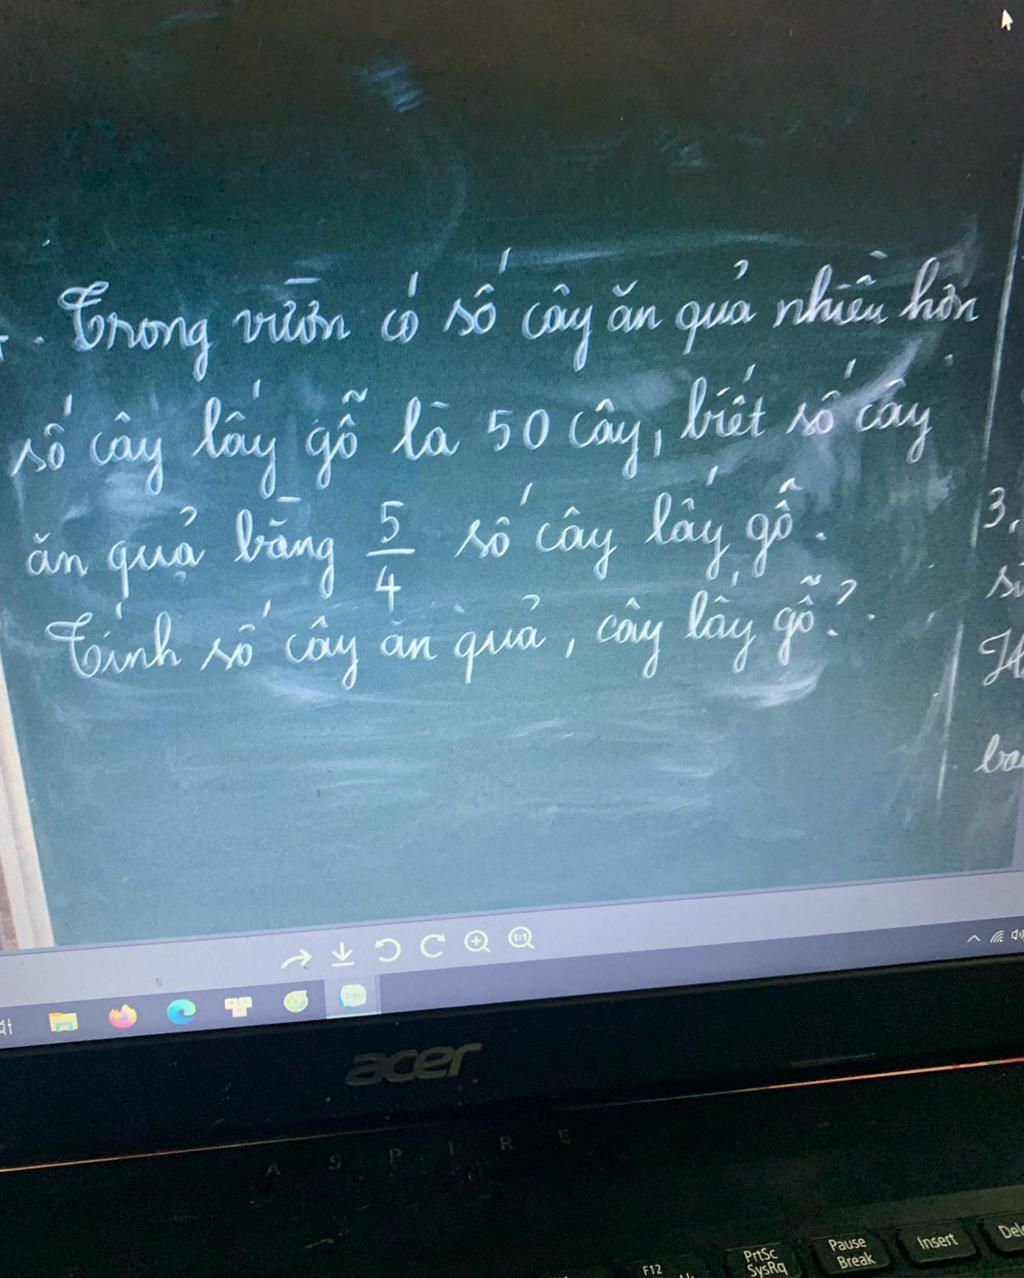 Trong vườn có số cây ăn quả nhiều hơn
số cây lấy gỗ là 50 cây, biết số cây
ăn quả bằng 5/4 số cây lấy gỗ.
Tính số cây ăn quả, cây lấy gỗ?
3,
acer
ASPIRE
F12
PrtSc
SysRq
Pause
Break
Insert